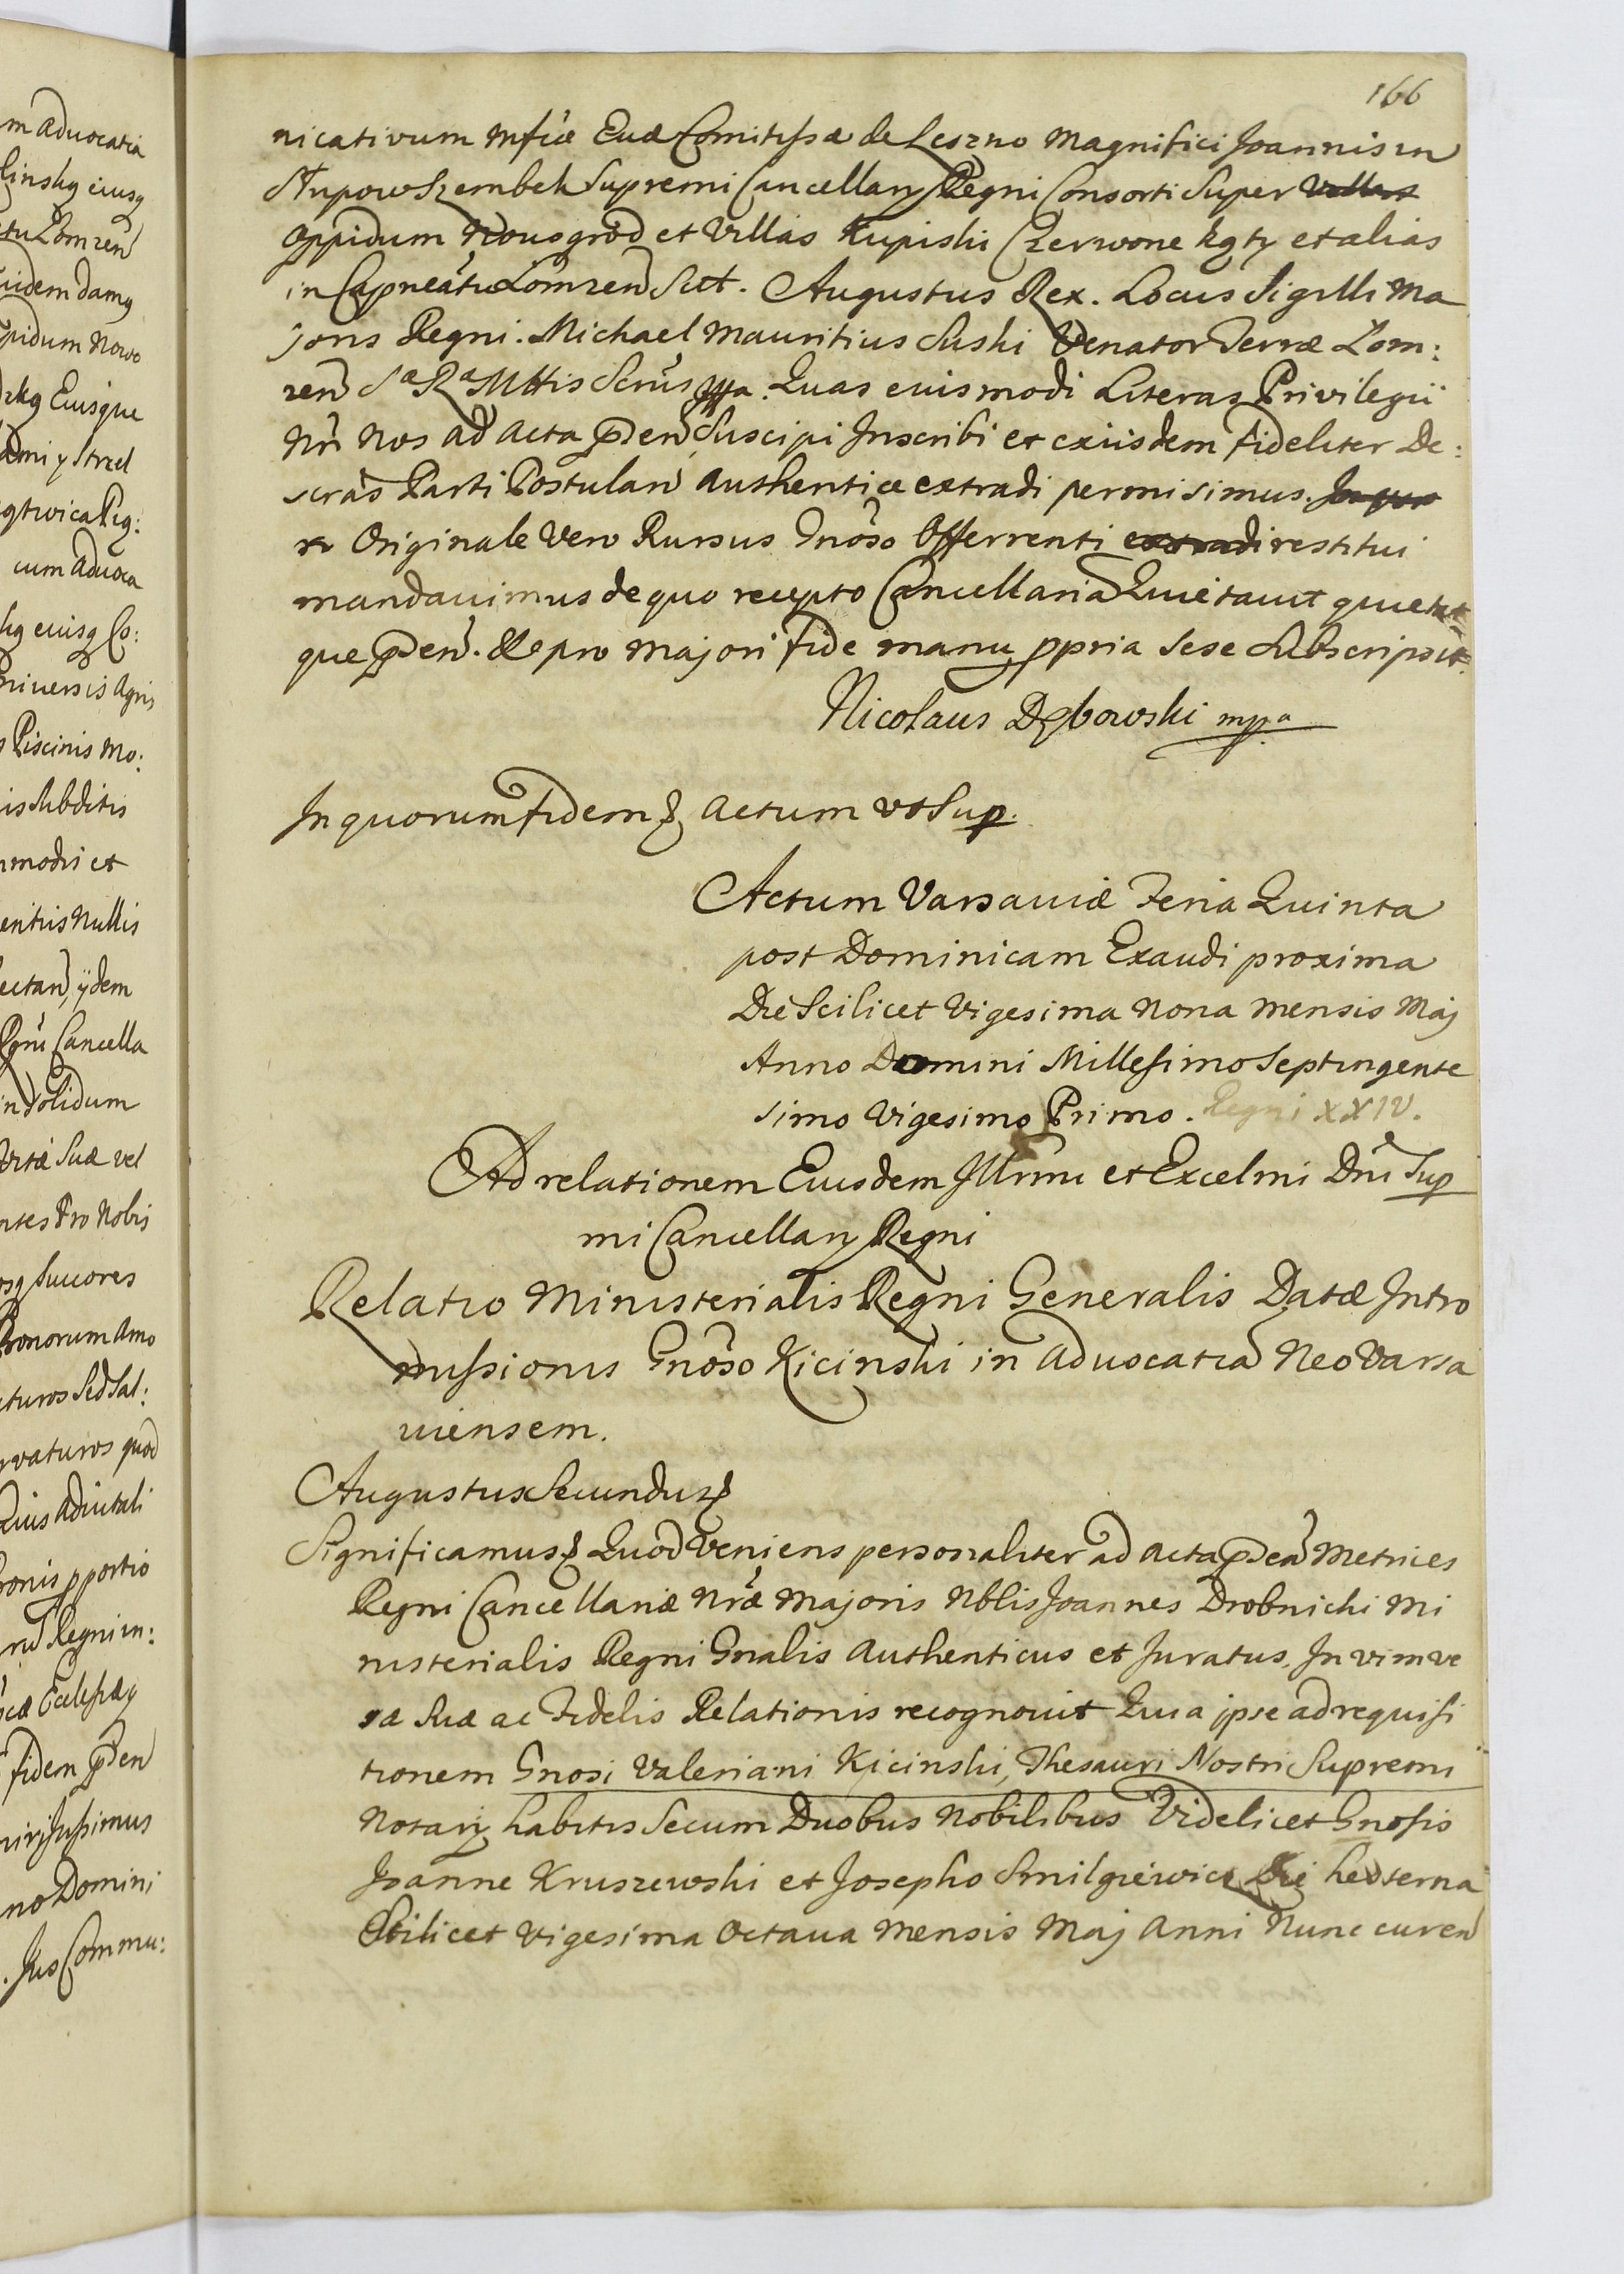 166
nicativum Mficæ Evæ Comitissæ de Leszno Magnifici Joannis in
Słupow Szembek Supremi Cancellarij Regni Consorti Super Villas
Oppidum Novogrod et Villas Kupiski Czerwone kąty et alias
in Capneatu Lomzen Sitt. Augustus Rex. Locus Sigilli Ma
joris Regni. Michael Mauritius Suski Venator Terræ Lom:
zen Sæ Ræ Mttis Secrius mppa. Quas eiusmodi Literas Privilegii
Nri Nos ad Acta pden Suscipi Inscribi et exiisdem fideliter De:
scras Parti Postulan Authentice extradi permisimus.
Originale Vero Rursus Gnoso Offerrenti extradi restitui
mandavimus de quo recepto Cancellaria Quietavit quietat
que pden. Se pro majori fide manu ppria Sese Subscripsit.
Nicolaus Dębowski mppa
In quorum fidem & Actum ut Sup.
Actum Varsaviæ Feria Quinta
post Dominicam Exaudi proxima
Die Scilicet Vigesima Nona Mensis Maj
Anno Domini Millesimo Septingente
simo Vigesimo Primo. Regni XXIV.
Ad relationem Eiusdem Illrmi et Excelmi Dni Sup
mi Cancellarij Regni
Relatio Ministerialis Regni Generalis Datæ Intro
missionis Gnoso Kicinski in Advocatia Neo Varsa
viensem.
Augustus Secundus &
Significamus & Quod Veniens personaliter ad Acta pdea Metrices
Regni Cancellariæ Nræ Majoris Nblis Joannes Drobnicki Mi
nisterialis Regni Gnalis Authenticus et Juratus, In vim ve
ræ Suæ ac Fidelis Relationis recognovit Quia ipse ad requisi
tionem Gnosi Valeriani Kicinski, Thesauri Nostri Supremi
Notarij habitis Secum Duobus Nobilibus Videlicet Gnosis
Joanne Kruszewski et Josepho Smilgiewicz Die hesterna
Scilicet Vigesima Octava Mensis Maj Anni Nunc curen
m advocatia
linskg eiusq
tu Lomzen
idem damq
pidum Nowo
Eiusque
cum advoca
hg eiusq Co:
niversis Agris
s Piscinis Mo:
is Subditis
modis et
entis Nullis
ectan, ijdem
Rgni Cancella
in Solidum
Vitæ Suæ vel
ntes Pro Nobis
osq Succores
Bonorum Amo
cturos Sed Sal:
rvaturos quod
pportio
ru Regni in:
fidem pden
Jussimus
no Domini
. Jus Commu: